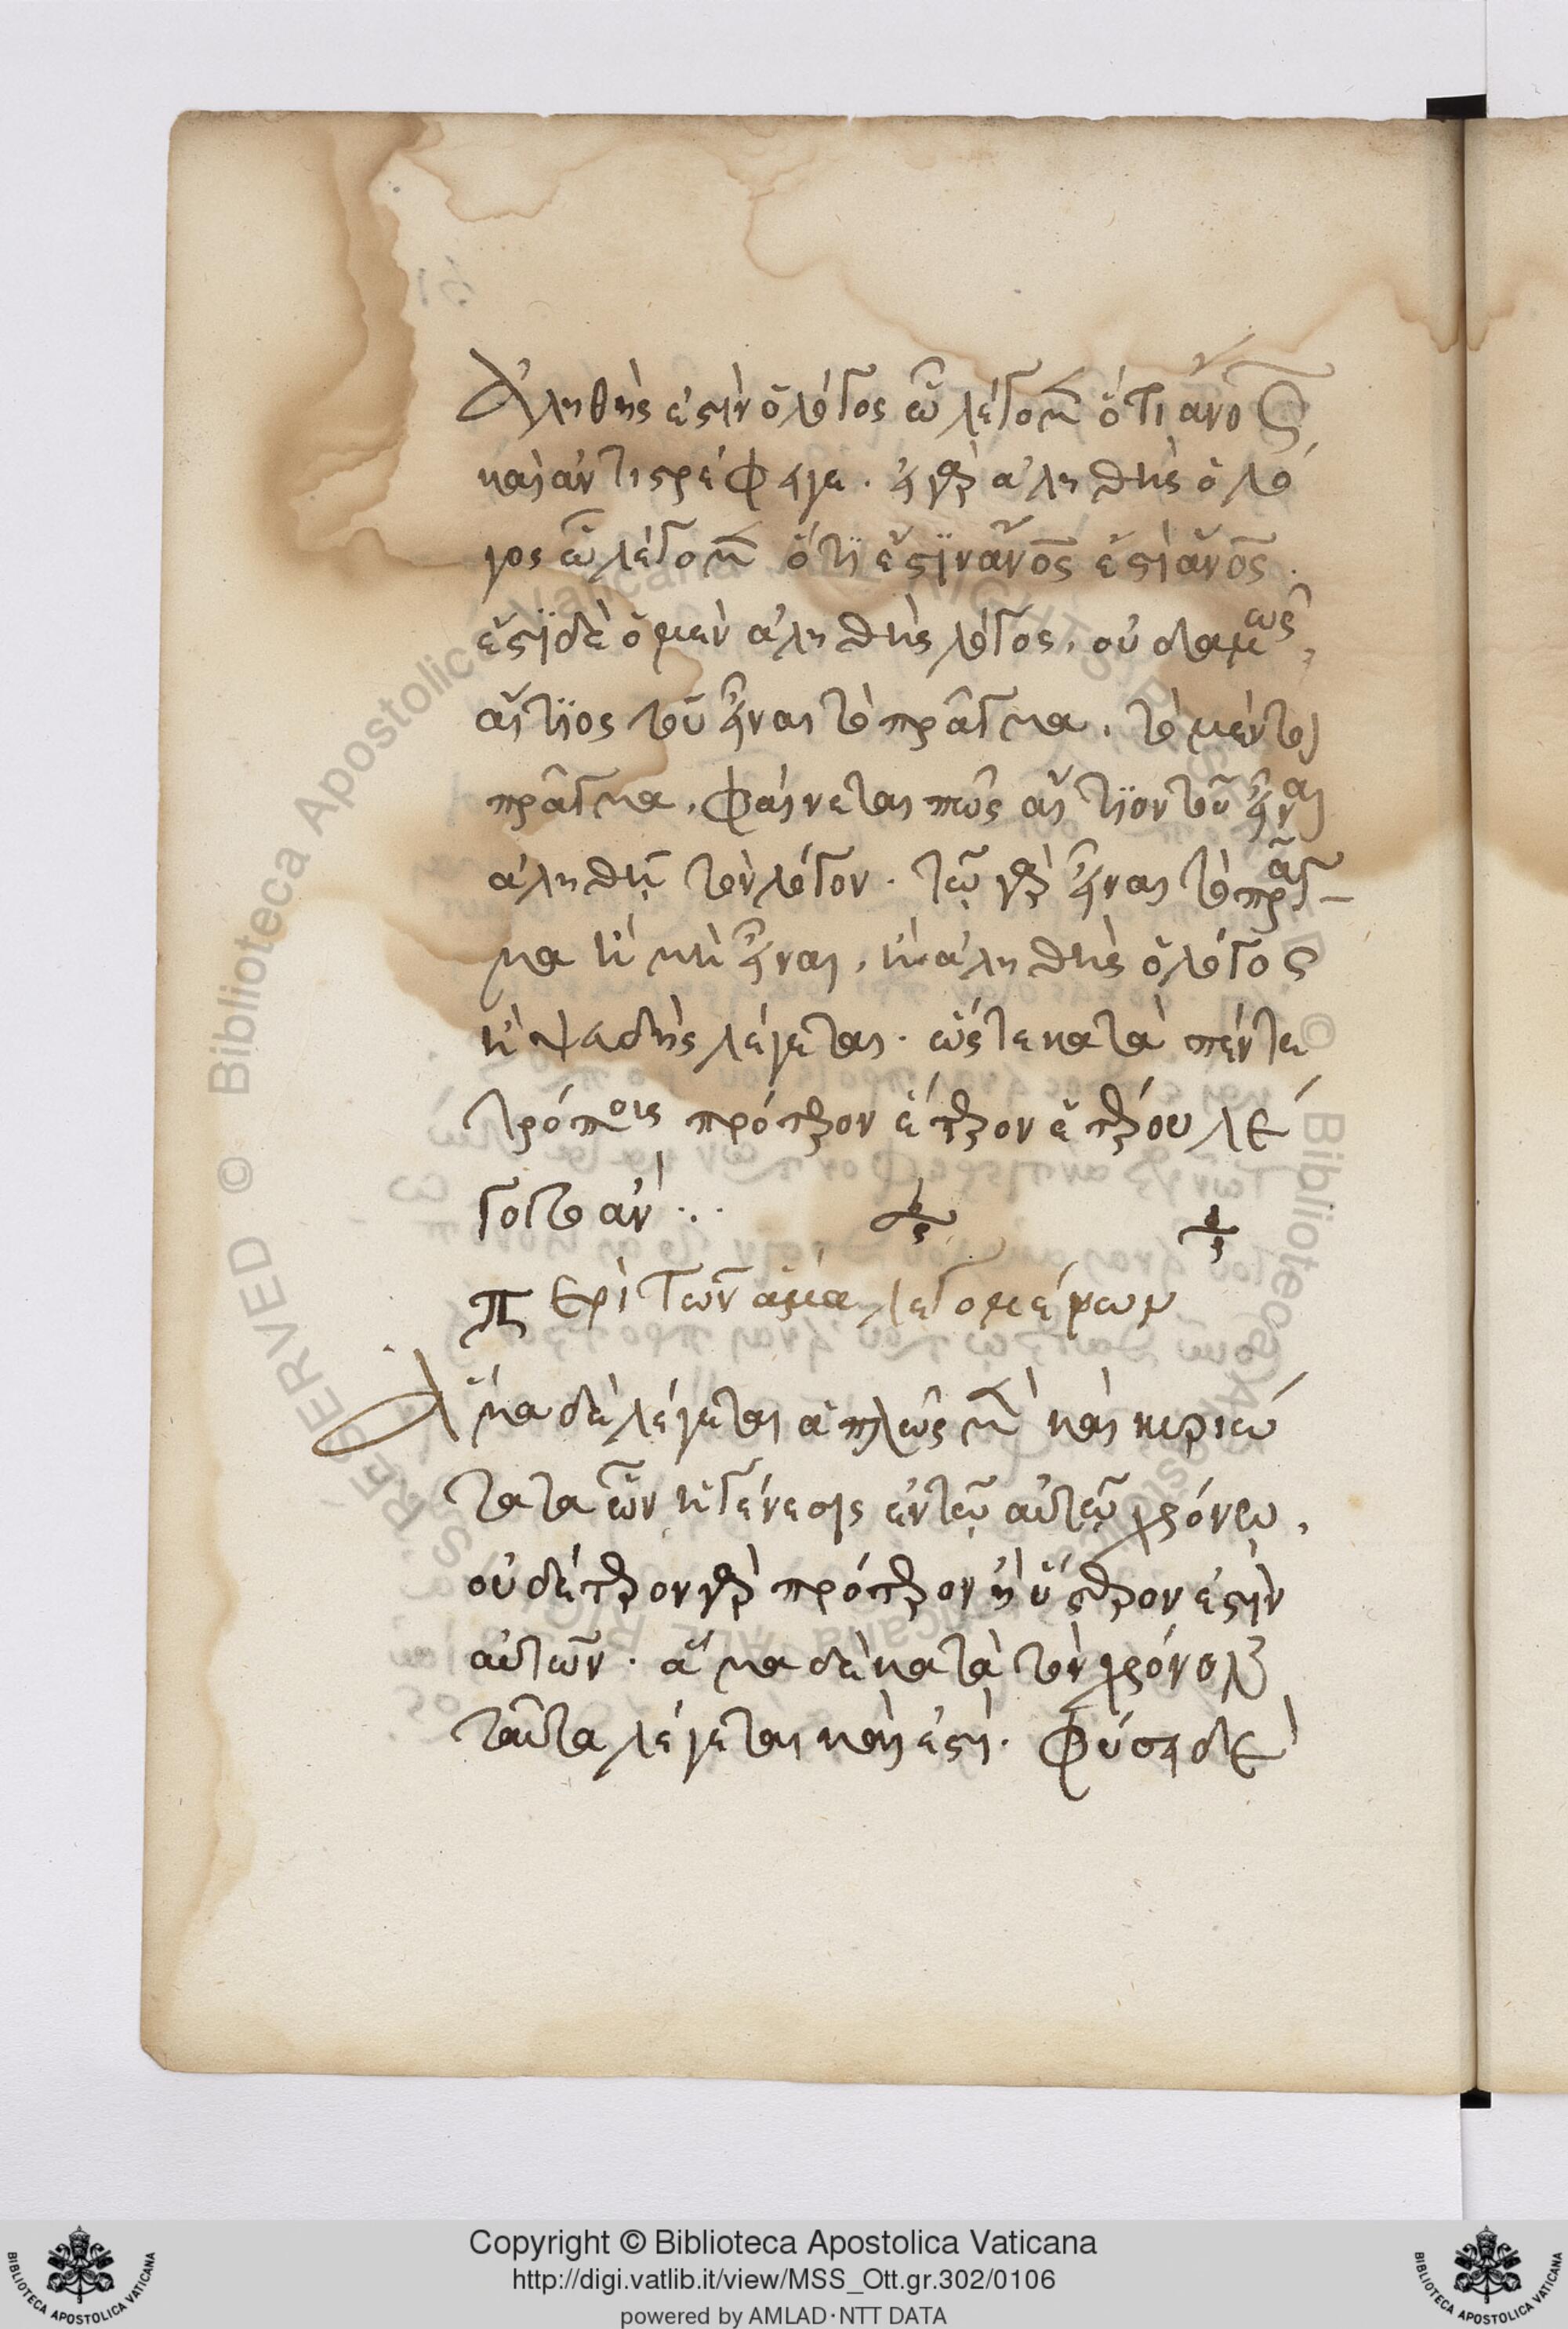 ἀληθής ἐστιν ὁ λόγος ὧ λέγομεν ὅτι ἄνος
καὶ ἀντιστρέφει γε. εἰ γὰρ ἀληθὴς ὁ λό
γος ὧ λέγομεν ὅτι ἔστιν ἄνος ἔστι ἄνος.
ἔστι δὲ ὁ μὲν ἀληθὴς λόγος, οὐδαμῶς,
αἴτιος τοῦ εἶναι τὸ πρᾶγμα. τὸ μέντοι
πρᾶγμα, φαίνεται πῶς αἴτιον τοῦ εἶναι
ἀληθῆ τὸν λόγον. τῷ γὰρ εἶναι τὸ πρᾶγ-
μα ἢ μὴ εἶναι, ἢ ἀληθὴς ὁ λόγος
ἢ ψευδὴς λέγεται. ὥστε κατὰ πέντε
τρόποις πρότερον ἕτερον ἑτέρου λέ
γοιτο ἄν
περὶ τῶν ἅμα λεγομένων
Ἅμα δὲ λέγεται ἁπλῶς μὲν καὶ κυριώ
τατα ὧν ἡ γένεσις ἐν τῷ αὐτῷ χρόνῳ,
οὐδέτερον γὰρ πρότερον ἢ ὕστερόν ἐστιν
αὐτῶν. ἅμα δὲ κατὰ τὸν χρόνον
ταῦτα λέγεται καὶ ἐστι. φύσει δὲ
© Biblioteca Apostolica Vaticana
Copyright © Biblioteca Apostolica Vaticana
http://digi.vatlib.it/view/MSS_Ott.gr.302/0106
powered by AMLAD·NTT DATA
BIBLIOTECA APOSTOLICA VATICANA
BIBLIOTECA APOSTOLICA VATICANA